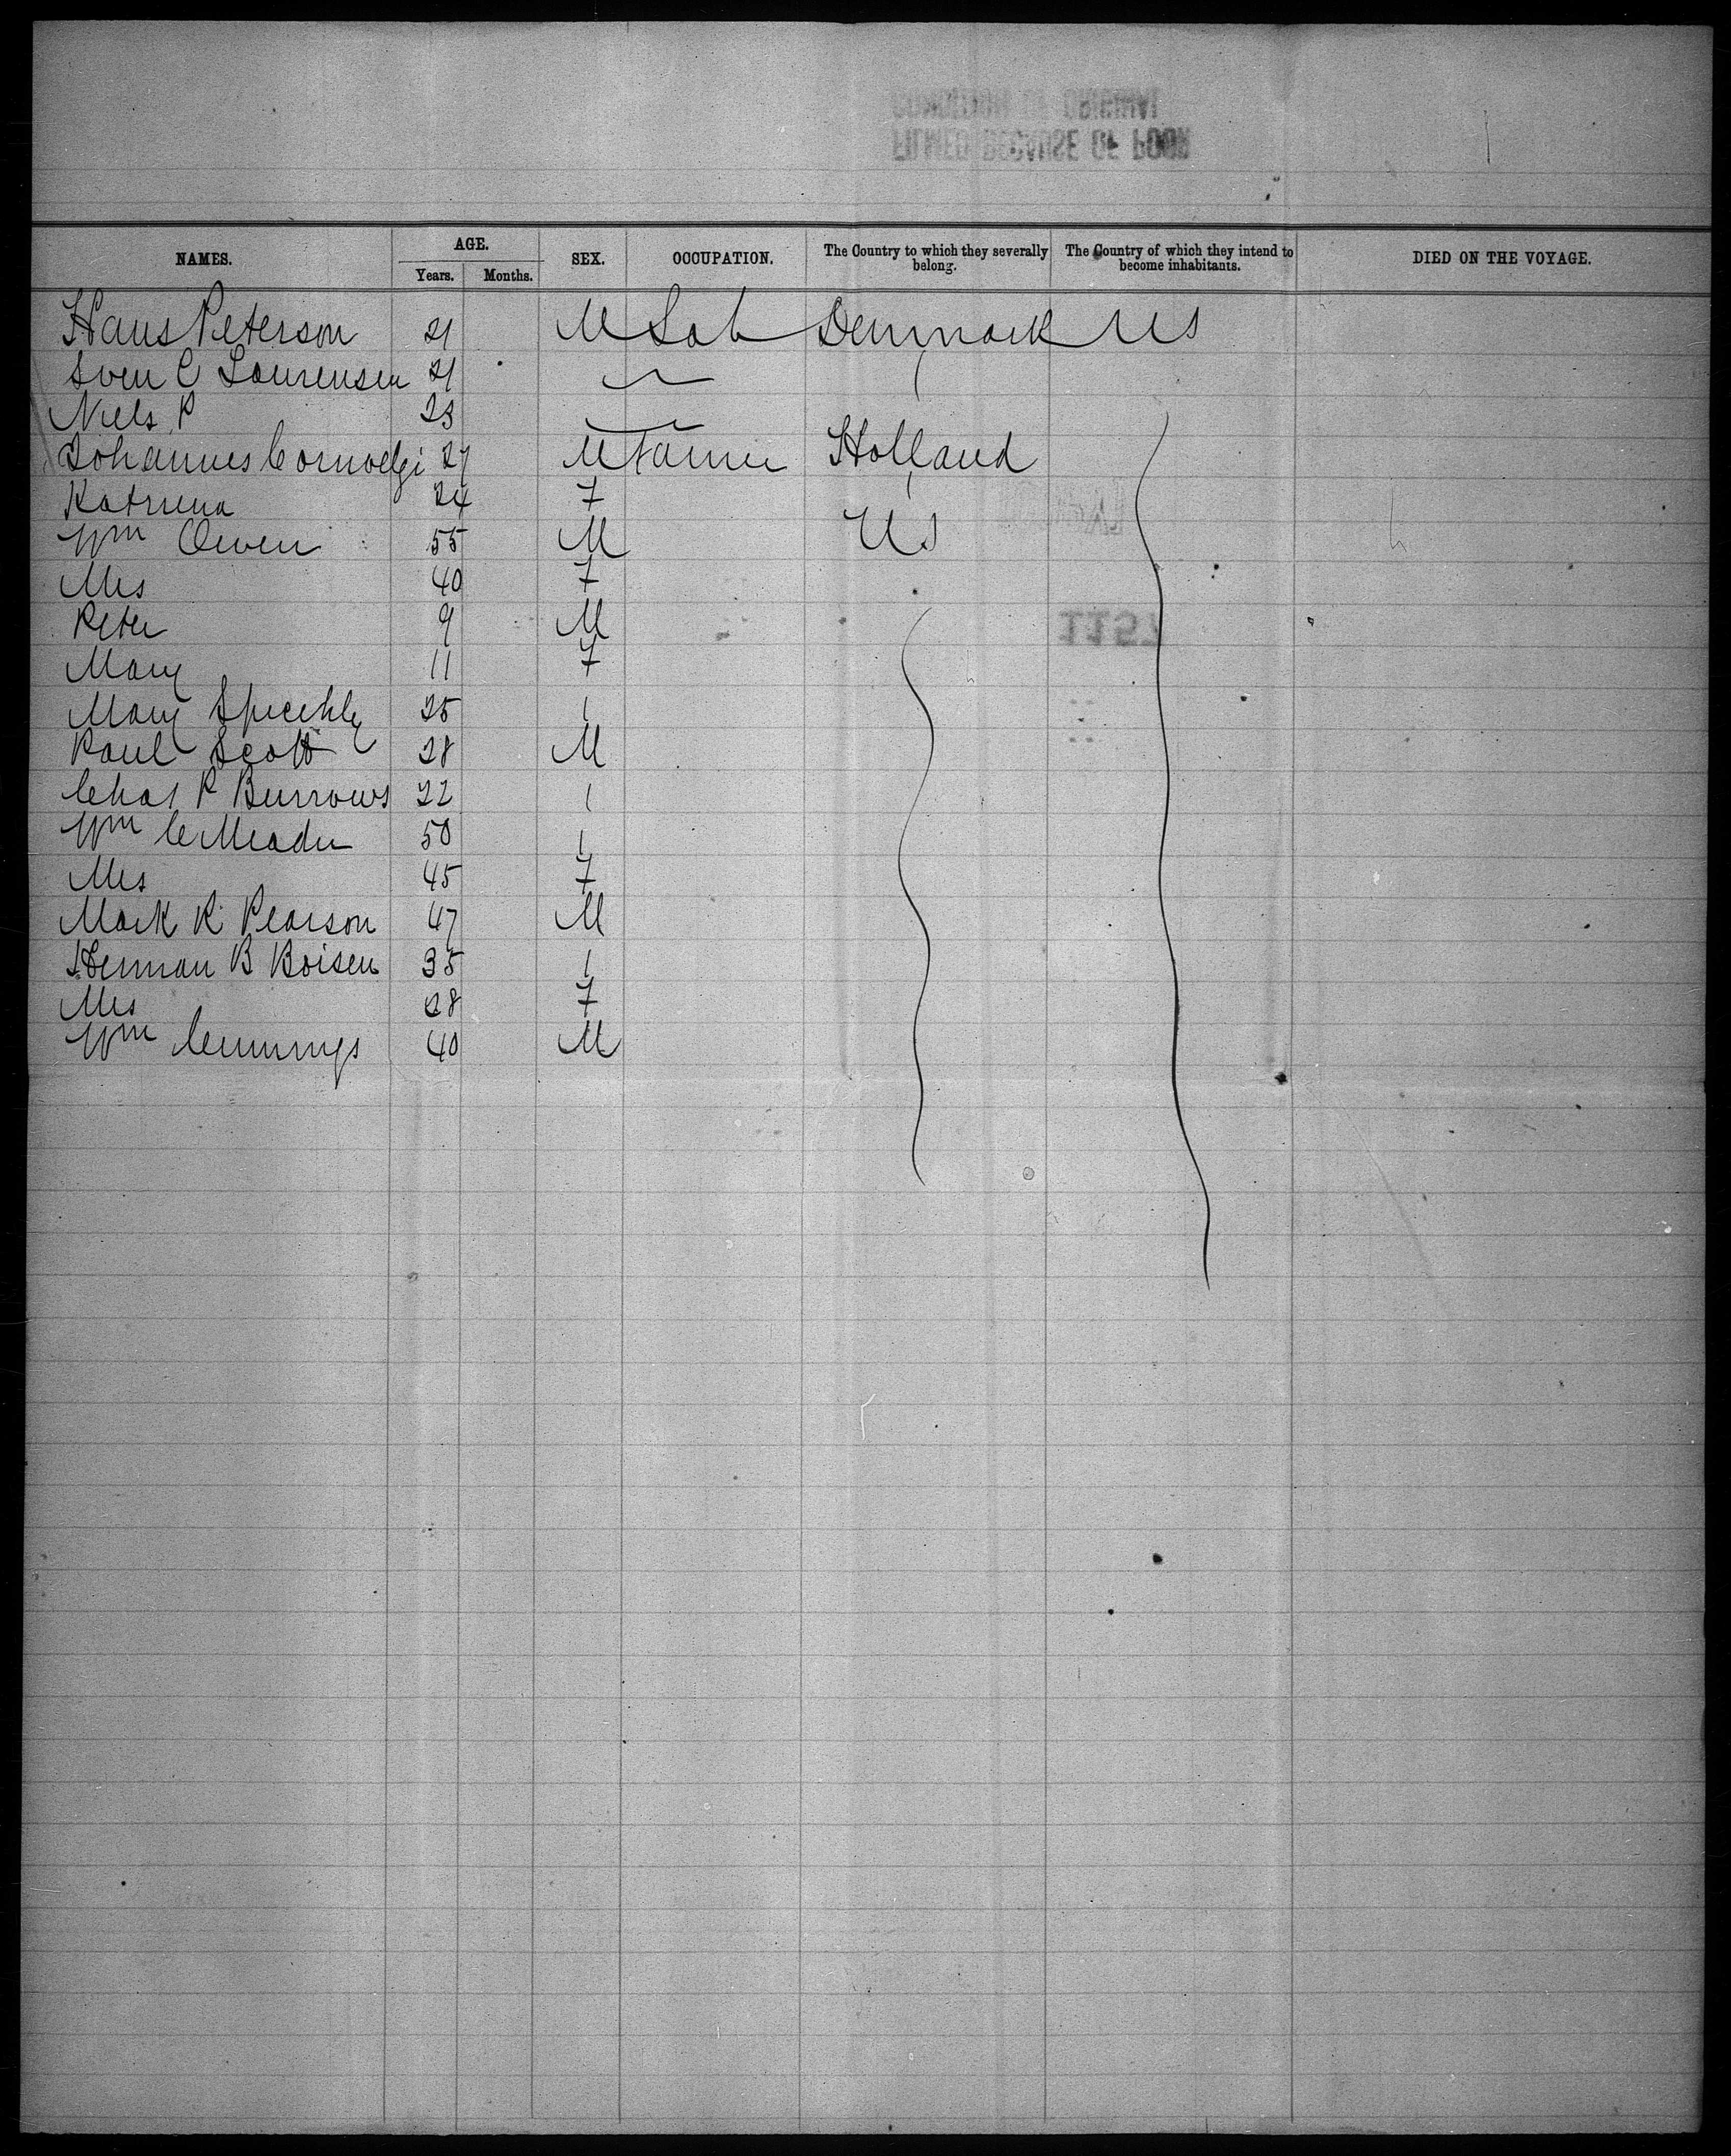 CONDITION OF ORIGINAL
FILMED BECAUSE OF POOR
NAMES. AGE. SEX. OCCUPATION. The Country to which they severally belong. The Country of which they intend to become inhabitants. DIED ON THE VOYAGE.
Years. Months.
Hans Peterson 21 M Lab Denmark US
Sven C Laurensen 21
Niels P 23
Johannes 27 M Farmer Holland
Katriena 24 F
Wm Owen 55 M US
Mrs 40 F
Peter 9 M
Mary 11 F
Mary 25
Paul Scott 28 M
Chas P Burrows 22
Wm C Meader 50
Mrs 45 F
Mark R Pearson 47 M
Herman B Boisen 35
Mrs 28 F
Wm Cummings 40 M